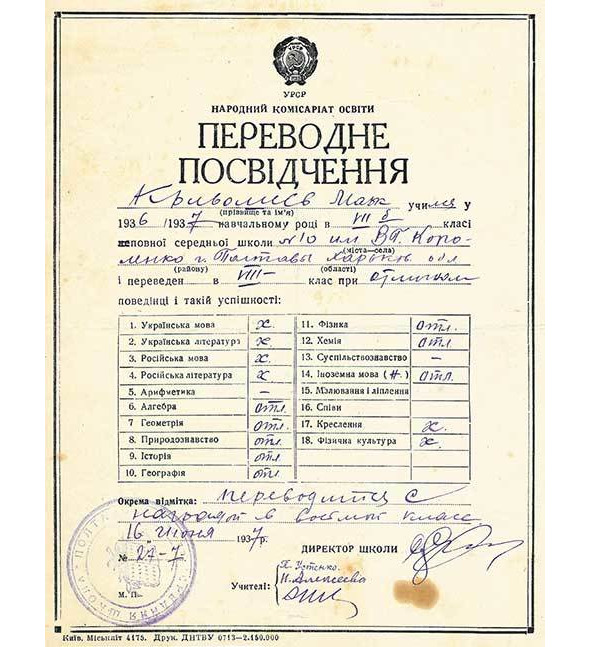 УРСР
НАРОДНИЙ КОМІСАРІАТ ОСВІТИ
ПЕРЕВОДНЕ
ПОСВІДЧЕННЯ
Криволиєв Макс училися у
(прізвище та ім'я)
1936/1937 навчальному році в VII б класі
неповної середньої школи №10 им В.Г. Коро-
(міста—села)
ленко г. Полтавы Харьков обл
(району) (області)
і переведен в VIII— клас при отличном
поведінці і такій успішності:
1. Українська мова х.
2. Українська література х.
3. Російська мова х.
4. Російська література х
5. Арифметика —
6. Алгебра отл.
7 Геометрія отл.
8. Природознавство отл.
9. Історія отл
10. Географія отл.
11. Фізика отл.
12. Хемія отл.
13. Суспільствознавство —
14. Іноземна мова (н.) отл.
15. Малювання і ліплення
16. Співи
17. Креслення х.
18. Фізична культура х.
Окрема відмітка: переводится с
наградой в восьмой класс
16 июня 1937р.
№ 27-7
М. П.
ДИРЕКТОР ШКОЛИ
Учителі:
Х. Устенко.
Н. Алексеева
Київ. Міськліт 4175. Друк. ДНТВУ 0713—2.150.000